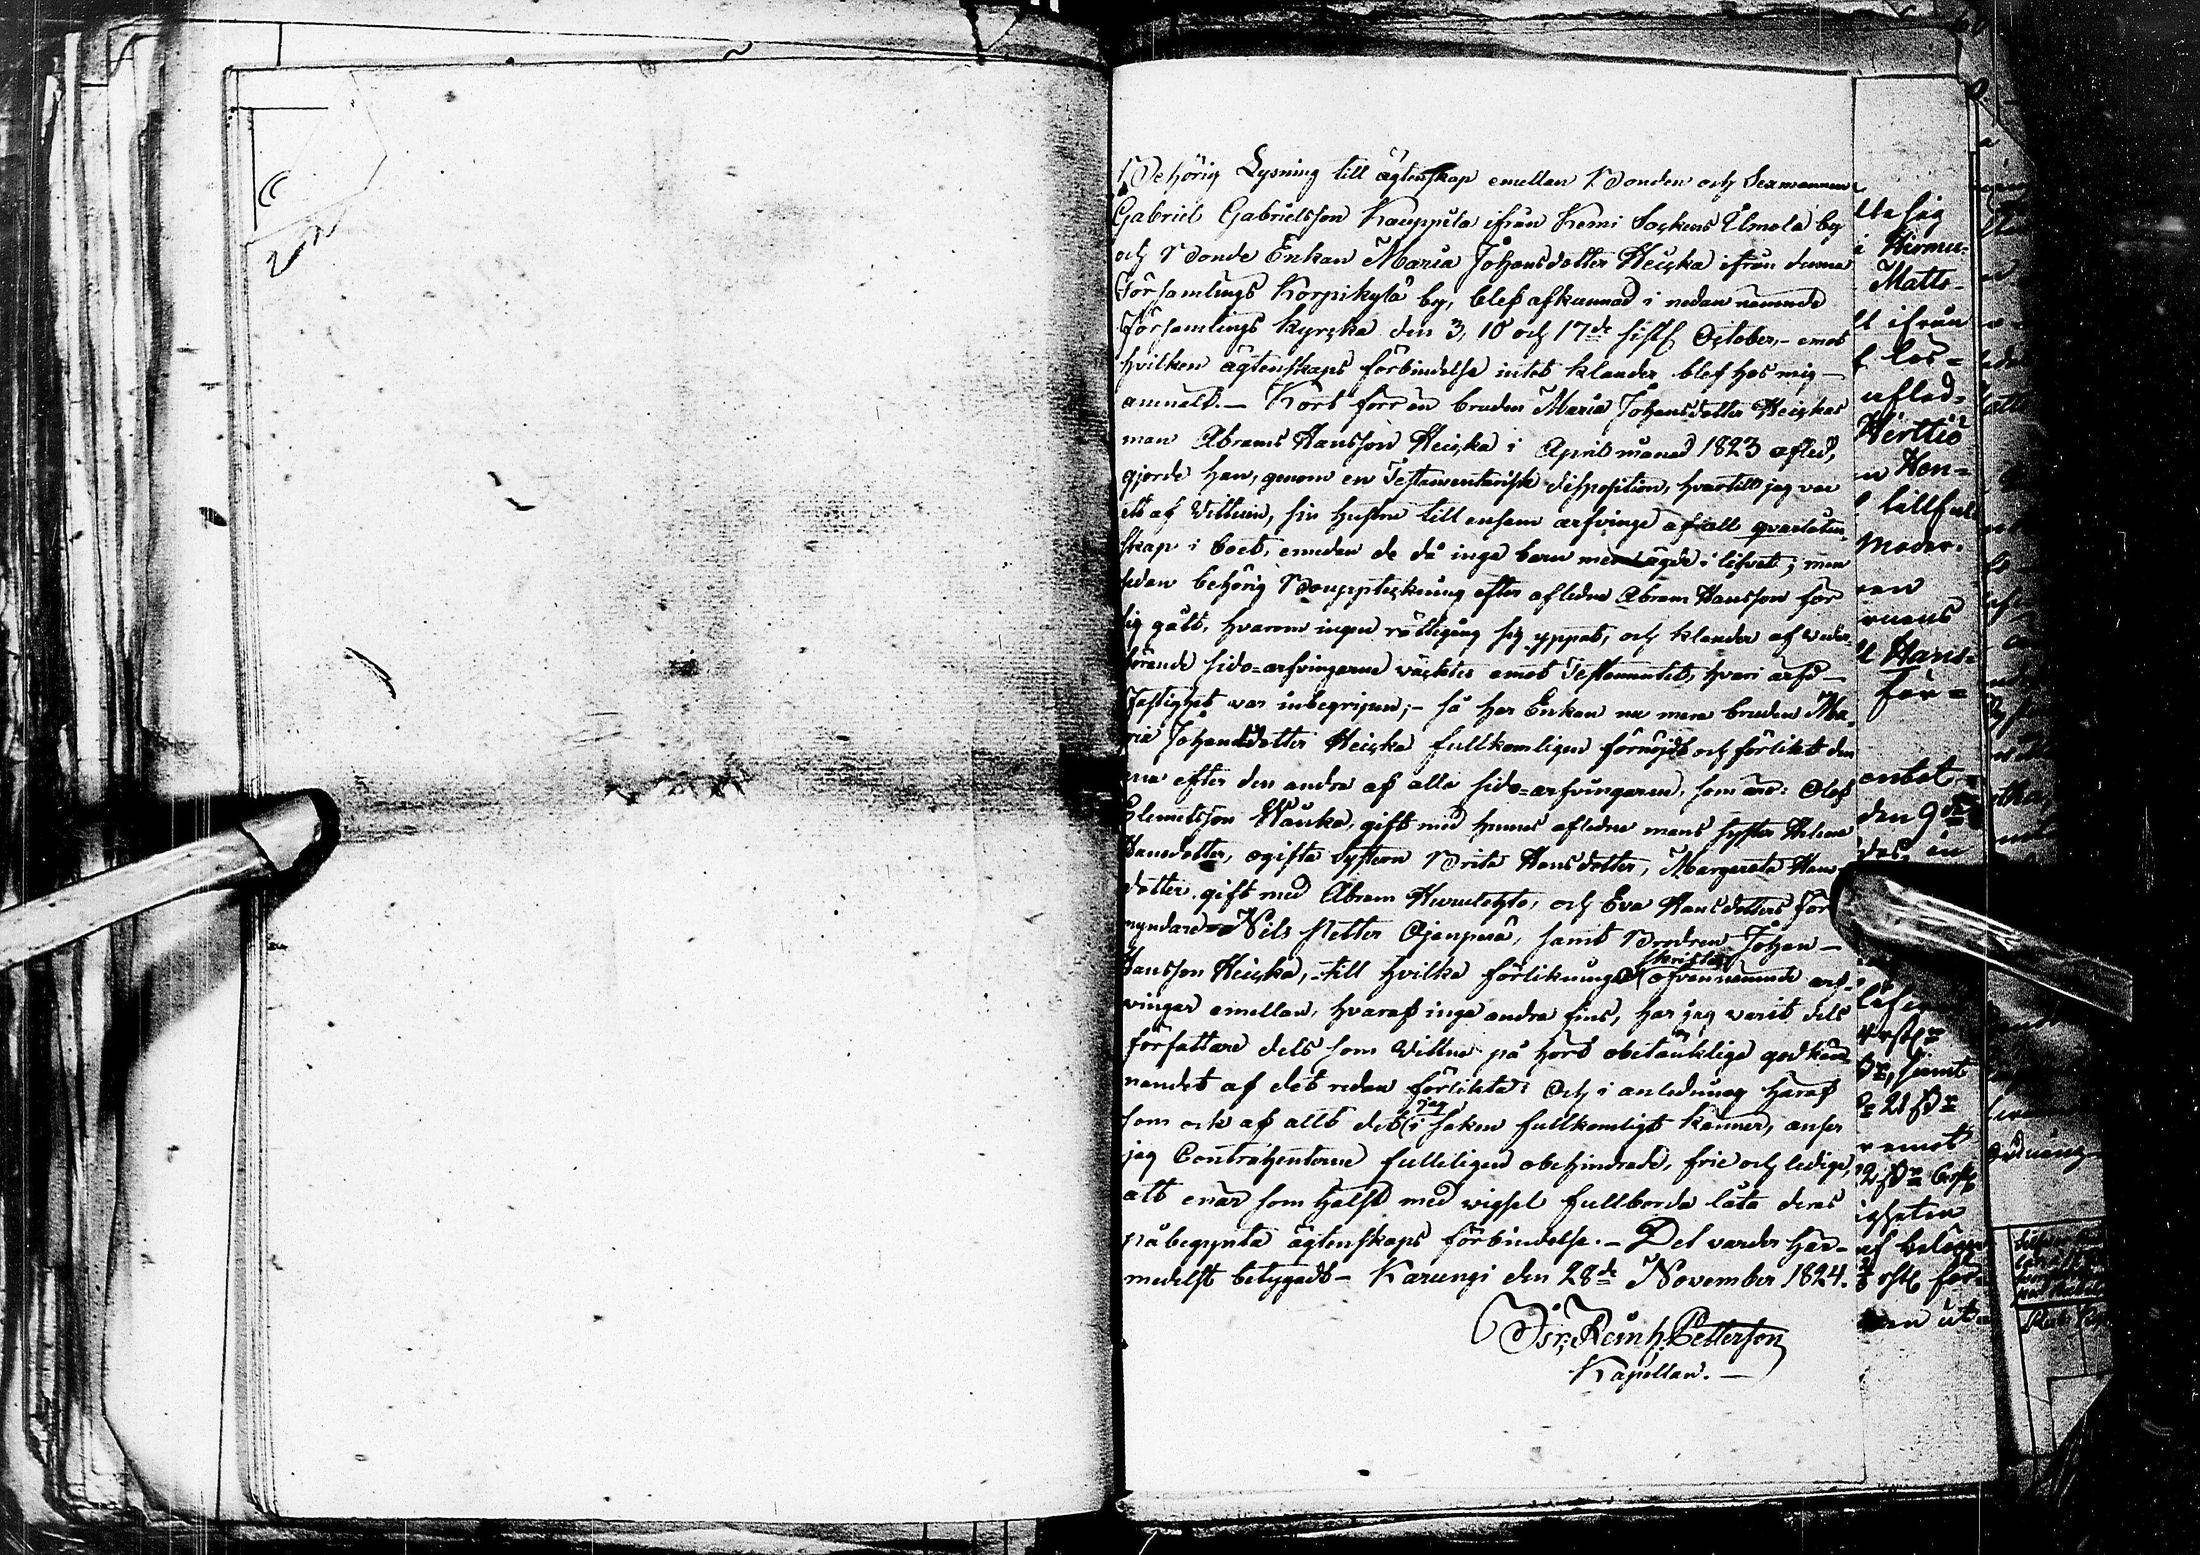 Behörig Lysning till ägtenskap emellan Bonden och Sexmannen
Gabriel Gabrielsson Kauppila ifrån Kemi Sockens Ilmola by
och Bonde Enkan Maria Johansdotter Heicka ifrån denna
Församlings Korpikylä by, blef afkunnad i nedan nämnde
Församlings kyrcka den 3, 10 och 17de sistl October,- emot
hvilken ägtenskaps förbindelse intet klander blef hos mig -
anmält. - Kort förr än bruden Maria Johansdotter Heickas
man Abram Hansson Heicka i April månad 1823 afled,
gjorde han, genom en Testamentarisk disposition, hvartill jag var
ett af Vittnen, sin hustru till ensam arfvinge af all qvarlåten
skap i boet, emedan de då inga barn med ägde i lifvet; men
sedan behörig Bouppteckning efter afledne Abram Hansson för
sig gått, hvarom ingen rättegång sig yppat, och klander af veder-
börande sido=arfvingarne väcktes emot Testamentet, hvari arfs-
fastighet var inbegripen,- så har Enkan nu mera bruden Ma-
ria Johansdotter Heicka fullkomligen förnöjdt och förlikt den
ena efter den andra af alla sido=arfvingarne, som äro: Olof
Clemetsson Wäuka, gift med hennes aflednes mans syster Helena
Hansdotter, ogifta systern Brita Hansdotter, Margareta Hans-
dotter gift med Abram Hurulehto, och Eva Hansdotters för
myndare Nils Petter Ojanperä, samt Brodren Johan -
Hansson Heicka, - till hvilka förliknings skrifter ofvannämnde arf-
vingar emellan, hvaraf inga andra fins, har jag varit dels
författare dels som Vittne på hört obetänklige godkän-
nandet af det redan förlikta: Och i anledning häraf
som ock af allt det jag i saken fullkomligt känner, anser
jag Contrahenterne fulleligen obehindrade, frie och ledige,
att enär som hälst med wigsel fullborda låta deras
påbegynta ägtenskaps förbindelse. - Det varder här-
medelst betygadt - Karungi den 28de November 1824.
Isr. Reinh. Petterson
Kapellan. -
lte sig
i Hirmu-
Matts-
lt ifrån
aflad-
Herttiö
n Han-
tillfäll
Moder.
lt Hans-
för-
den 9de
samt
emot